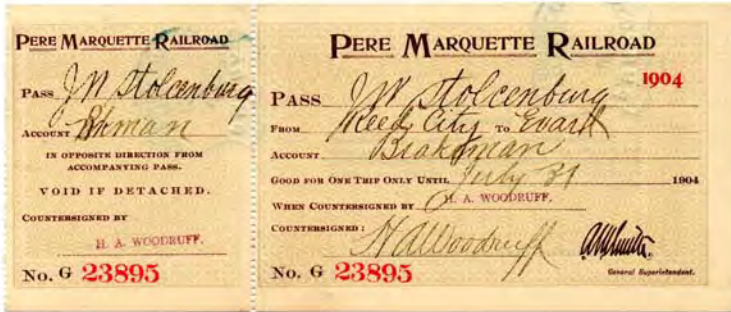 PERE MARQUETTE RAILROAD
PASS J W Stolcenburg
ACCOUNT Bkman
IN OPPOSITE DIRECTION FROM
ACCOMPANYING PASS.
VOID IF DETACHED.
COUNTERSIGNED BY
H. A. WOODRUFF.
No. G 23895
PERE MARQUETTE RAILROAD
1904
PASS J W Stolcenburg
FROM Reed City TO Evart
ACCOUNT Brakeman
GOOD FOR ONE TRIP ONLY UNTIL July 31 1904
WHEN COUNTERSIGNED BY H. A. WOODRUFF.
COUNTERSIGNED:
H A Woodruff
General Superintendent.
No. G 23895